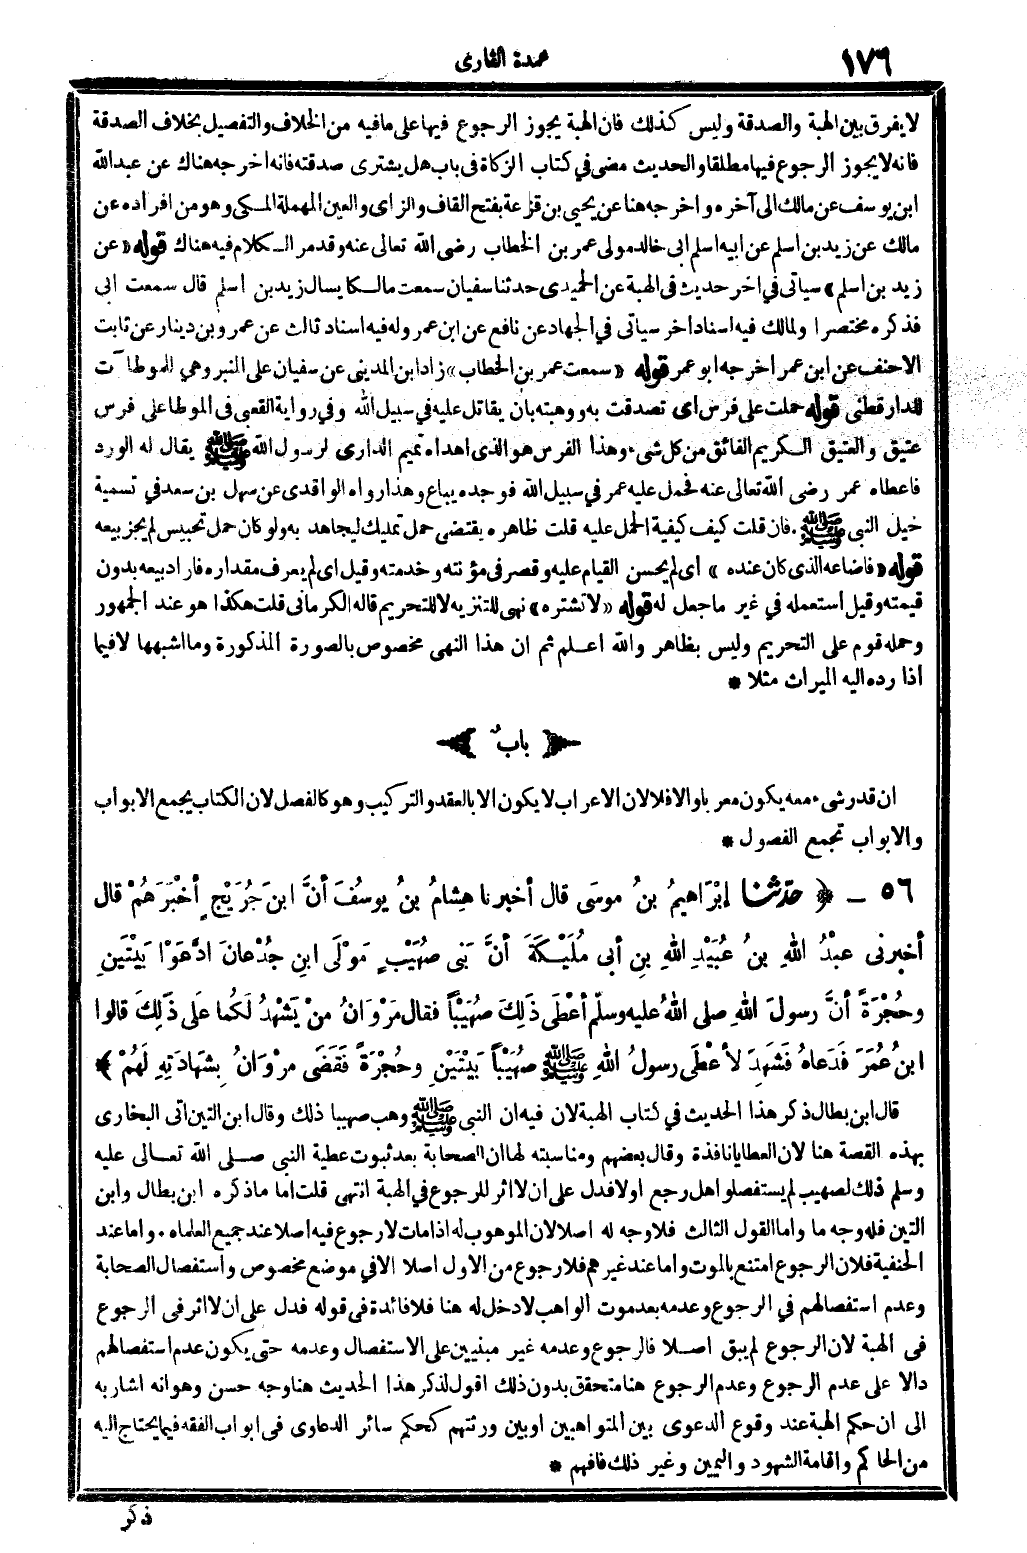 ١٧٦
عمدة القارى
لايفرق بين الهبة والصدقة وليس كذلك فان الهبة يجوز الرجوع فيها على مافيه من الخلاف والتفصيل بخلاف الصدقة
فانه لايجوز الرجوع فيها مطلقا والحديث مضى في كتاب الزكاة فى باب هل يشترى صدقته فانه اخرجه هناك عن عبدالله
ابن يوسف عن مالك الى آخره واخرجه هنا عن يحيى بن قزعة بفتح القاف والزاى والعين المهملة المكى وهو من افراده عن
مالك عن زيد بن اسلم عن ابيه اسلم ابى خالد مولى عمر بن الخطاب رضى الله تعالى عنه وقد مر الكلام فيه هناك قوله «عن
زيد بن اسلم» سياتى في اخر حديث فى الهبة عن الحميدى حدثنا سفيان سمعت مالكا يسال زيد بن اسلم قال سمعت ابى
فذكره مختصرا ولمالك فيه اسناد اخر سياتى في الجهاد عن نافع عن ابن عمر وله فيه اسناد ثالث عن عمرو بن دينار عن ثابت
الاحنف عن ابن عمر اخرجه ابو عمر قوله «سمعت عمر بن الخطاب» زاد ابن المدينى عن سفيان على المنبر وهي للموطاآت
للدارقطنى قوله حملت على فرس اى تصدقت به ووهبته بان يقاتل عليه في سبيل الله وفي رواية القعنبى فى الموطا على فرس
عتيق والعتيق الكريم الفائق من كل شىء وهذا الفرس هو الذى اهداه تميم الدارى لرسول الله ﷺ يقال له الورد
فاعطاه عمر رضى الله تعالى عنه فحمل عليه عمر في سبيل الله فوجده يباع وهذا رواه الواقدى عن سهل بن سعد في تسمية
خيل النبى ﷺ . فان قلت كيف كيفية الحمل عليه قلت ظاهره يقتضى حمل تمليك ليجاهد به ولو كان حمل تحبيس لم يجز بيعه
قوله «فاضاعه الذى كان عنده» اى لم يحسن القيام عليه وقصر فى مؤنته وخدمته وقيل اى لم يعرف مقداره فاراد بيعه بدون
قيمته وقيل استعمله في غير ماجعل له قوله «لاتشتره» نهى للتنزيه لا للتحريم قاله الكرمانى قلت هكذا هو عند الجمهور
وحمله قوم على التحريم وليس بظاهر والله اعلم ثم ان هذا النهى مخصوص بالصورة المذكورة ومااشبهها لافيما
اذا رده اليه الميراث مثلا *
باب
ان قدر شىء معه يكون معربا والا فلا لان الاعراب لايكون الا بالعقد والتركيب وهو كالفصل لان الكتاب يجمع الابواب
والابواب تجمع الفصول *
٥٦ – ﴿ حدّثنا إبْرَاهِيمُ بنُ موسَى قال أخبرنا هِشامُ بنُ يوسُفَ أنَّ ابنَ جُرَيْجٍ أخْبَرَهُمْ قال
أخبرنى عبْدُ اللهِ بنُ عُبَيْدِ اللهِ بنِ أبى مُلَيْكَةَ أنَّ بَنى صُهَيْبٍ مَوْلَى ابنِ جُدْعانَ ادَّعَوْا بَيْتَيْنِ
وحُجْرَةً أنَّ رسولَ اللهِ صلى اللهُ عليه وسلّم أعْطَى ذَلِكَ صُهَيْباً فقال مَرْوَانُ منْ يَشْهَدُ لَكُما عَلى ذَلِكَ قالوا
ابنُ عُمَرَ فَدَعاهُ فَشَهِدَ لأَعْطَى رسولُ اللهِ ﷺ صُهَيْباً بَيْتَيْنِ وحُجْرَةً فَقَضَى مرْوَانُ بِشَهادَتِهِ لَهُمْ ﴾
قال ابن بطال ذكر هذا الحديث في كتاب الهبة لان فيه ان النبى ﷺ وهب صهيبا ذلك وقال ابن التين اتى البخارى
بهذه القصة هنا لان العطايا نافذة وقال بعضهم ومناسبته لها ان الصحابة بعد ثبوت عطية النبى صلى الله تعالى عليه
وسلم ذلك لصهيب لم يستفصلوا هل رجع اولا فدل على ان لا اثر للرجوع في الهبة انتهى قلت اما ماذكره ابن بطال وابن
التين فله وجه ما واما القول الثالث فلا وجه له اصلا لان الموهوب له اذا مات لارجوع فيه اصلا عند جميع العلماء . واما عند
الحنفية فلان الرجوع امتنع بالموت واما عند غيرهم فلا رجوع من الاول اصلا الا في موضع مخصوص واستفصال الصحابة
وعدم استفصالهم في الرجوع وعدمه بعد موت الواهب لادخل له هنا فلا فائدة فى قوله فدل على ان لا اثر فى الرجوع
فى الهبة لان الرجوع لم يبق اصلا فالرجوع وعدمه غير مبنيين على الاستفصال وعدمه حتى يكون عدم استفصالهم
دالا على عدم الرجوع وعدم الرجوع هنا متحقق بدون ذلك اقول لذكر هذا الحديث هنا وجه حسن وهو انه اشار به
الى ان حكم الهبة عند وقوع الدعوى بين المتواهبين او بين ورثتهم كحكم سائر الدعاوى فى ابواب الفقه فيما يحتاج اليه
من الحاكم واقامة الشهود واليمين وغير ذلك فافهم *
ذكر